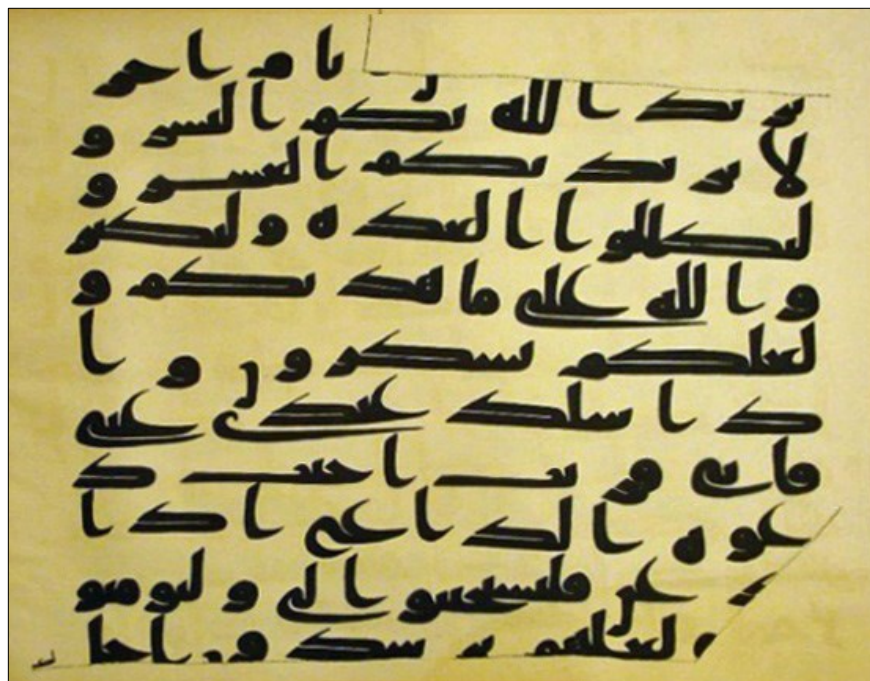 يام اخر
يريد الله بكم اليسر و
لا يريد بكم العسر و
لتكملوا العده ولتكبر
وا الله على ما هديكم و
لعلكم تشكرون وا
ذا سالك عبدي عني
فاني قريب اجيب د
عوه الداع اذا
عن فليستجيبوا لي وليومنو
لعلهم يرشدون احل